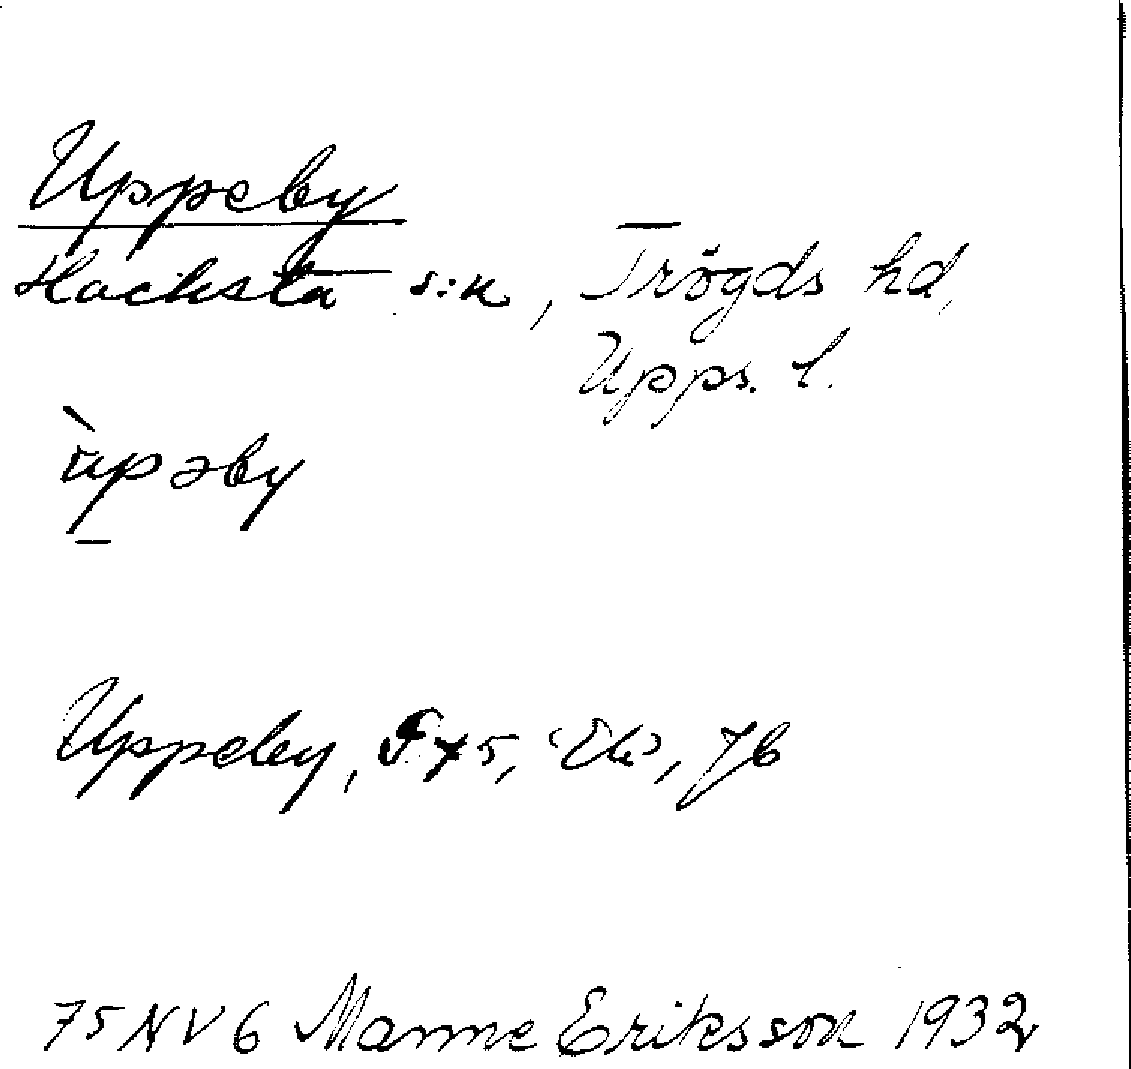 Uppeby
Hacksta s:n, Trögds hd,
Upps. l.
ùpəby
Uppeby, F 75, Ek, Jb
75 NV 6 Manne Eriksson 1932